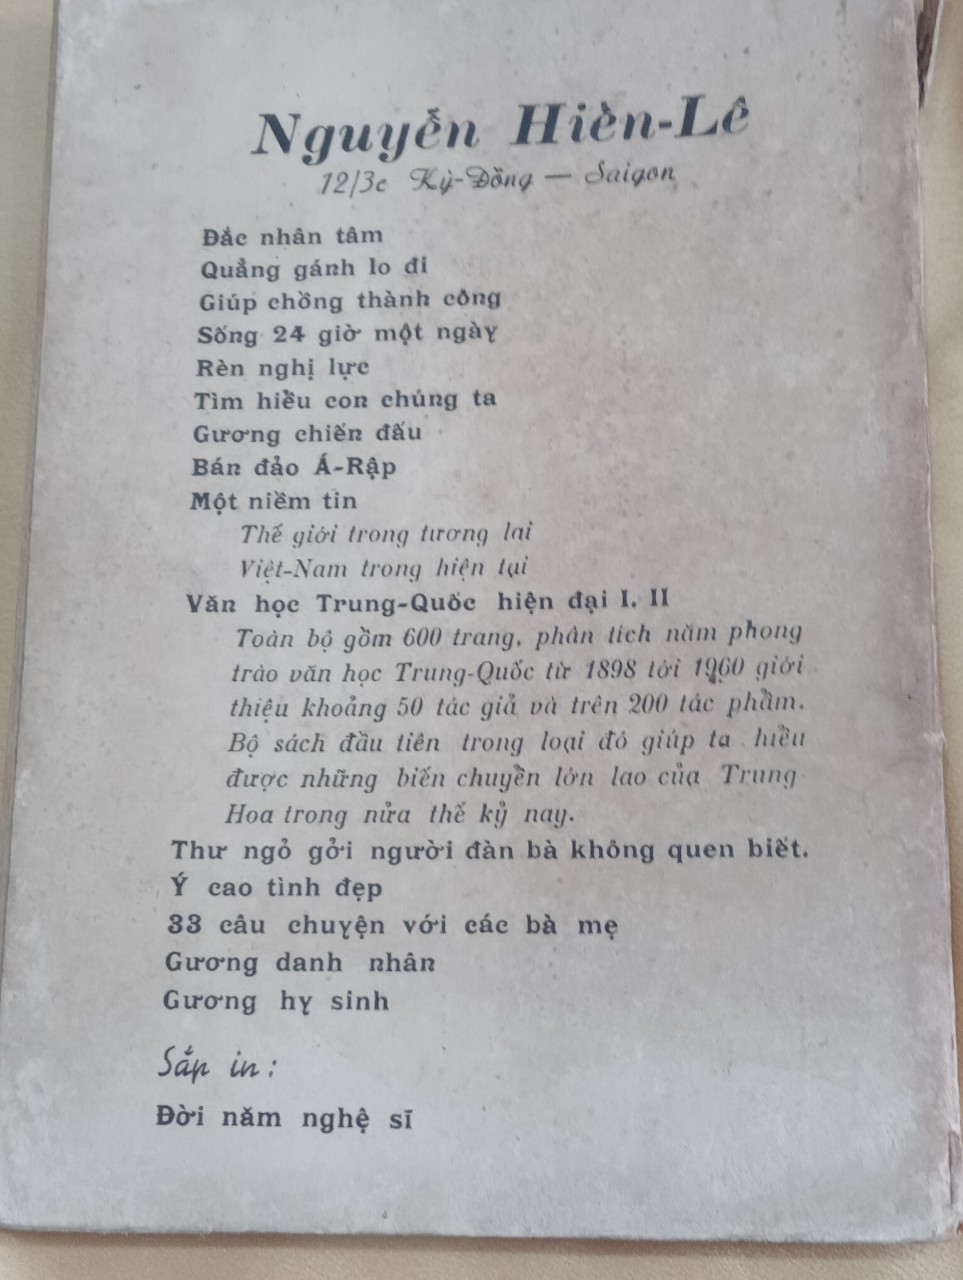 Nguyễn Hiến-Lê
12/3c Kỳ-Đồng — Saigon
Đắc nhân tâm
Quẳng gánh lo đi
Giúp chồng thành công
Sống 24 giờ một ngày
Rèn nghị lực
Tìm hiểu con chúng ta
Gương chiến đấu
Bán đảo Á-Rập
Một niềm tin
Thế giới trong tương lai
Việt-Nam trong hiện tại
Văn học Trung-Quốc hiện đại I. II
Toàn bộ gồm 600 trang, phân tích năm phong
trào văn học Trung-Quốc từ 1898 tới 1960 giới
thiệu khoảng 50 tác giả và trên 200 tác phẩm.
Bộ sách đầu tiên trong loại đó giúp ta hiểu
được những biến chuyển lớn lao của Trung
Hoa trong nửa thế kỷ nay.
Thư ngỏ gởi người đàn bà không quen biết.
Ý cao tình đẹp
33 câu chuyện với các bà mẹ
Gương danh nhân
Gương hy sinh
Sắp in :
Đời năm nghệ sĩ